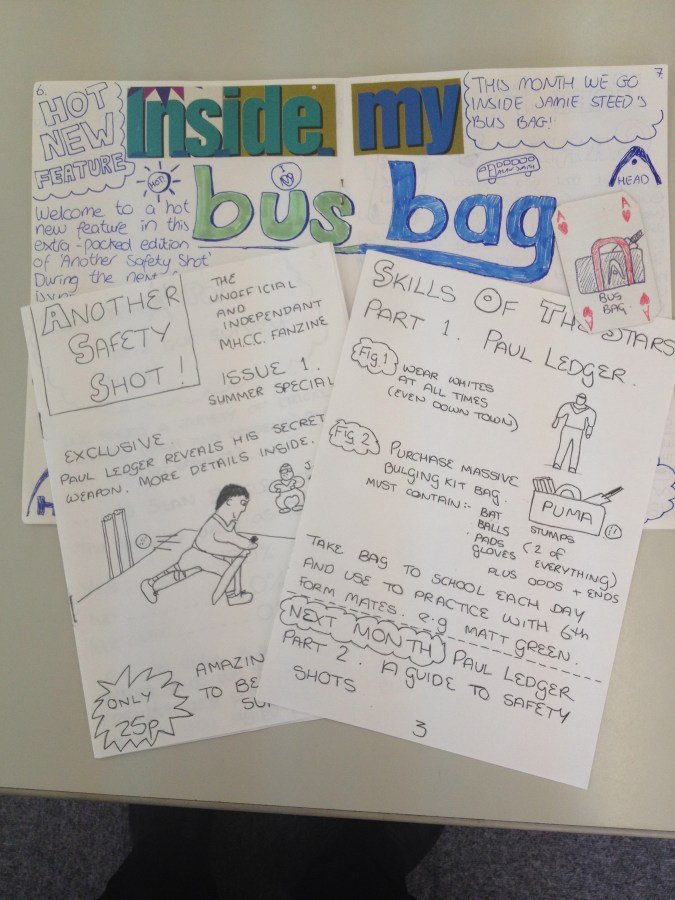 6.
HOT
NEW
FEATURE
Inside my
bus bag
HOT!
THIS MONTH WE GO
INSIDE JAMIE STEED'S
BUS BAG!
7.
HEAD
Welcome to a hot
new feature in this
extra-packed edition
of 'Another Safety Shot'
During the next
A
A
BUS
BAG
ANOTHER
SAFETY
SHOT!
THE
UNOFFICIAL
AND
INDEPENDANT
M.H.C.C. FANZINE
ISSUE 1.
SUMMER SPECIAL
EXCLUSIVE.
PAUL LEDGER REVEALS HIS SECRET
WEAPON. MORE DETAILS INSIDE.
ONLY
25p
TO BE
SKILLS OF THE STARS
PART 1. PAUL LEDGER.
Fig.1
WEAR WHITES
AT ALL TIMES
(EVEN DOWN TOWN)
Fig 2
PURCHASE MASSIVE
BULGING KIT BAG.
MUST CONTAIN:- BAT
BALLS STUMPS
PADS (2 OF
GLOVES EVERYTHING)
PLUS ODDS + ENDS
PUMA
TAKE BAG TO SCHOOL EACH DAY
AND USE TO PRACTICE WITH 6th
FORM MATES. e.g MATT GREEN.
NEXT MONTH PAUL LEDGER
PART 2. A GUIDE TO SAFETY
SHOTS
3